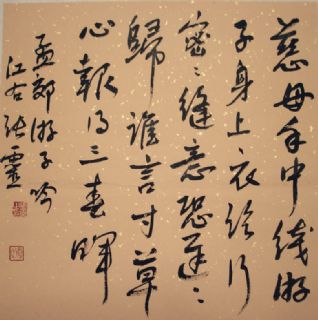 慈母手中綫游
子身上衣临行
密〻缝意恐遲〻
歸誰言寸草
心報得三春晖
孟郊游子吟
江右张靈